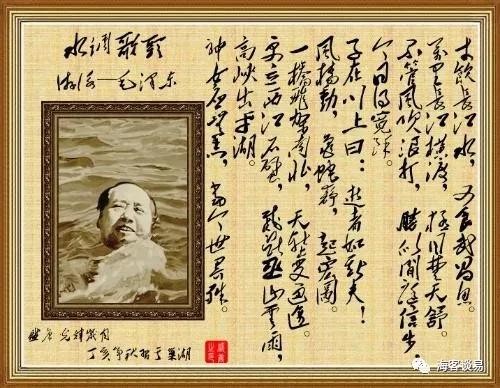 水调歌頭
游泳—毛泽东
才饮长江水，又食武昌鱼。
万里长江横渡，极目楚天舒。
不管风吹浪打，勝似闲庭信步，
今日得宽馀。
子在川上曰：逝者如斯夫！
风樯動，龜蛇静，起宏圖。
一橋飛架南北，天堑变通途。
更立西江石壁，截断巫山云雨，
高峡出平湖。
神女应无恙，當今世界殊。
丁亥年秋于巢湖
海客谈易